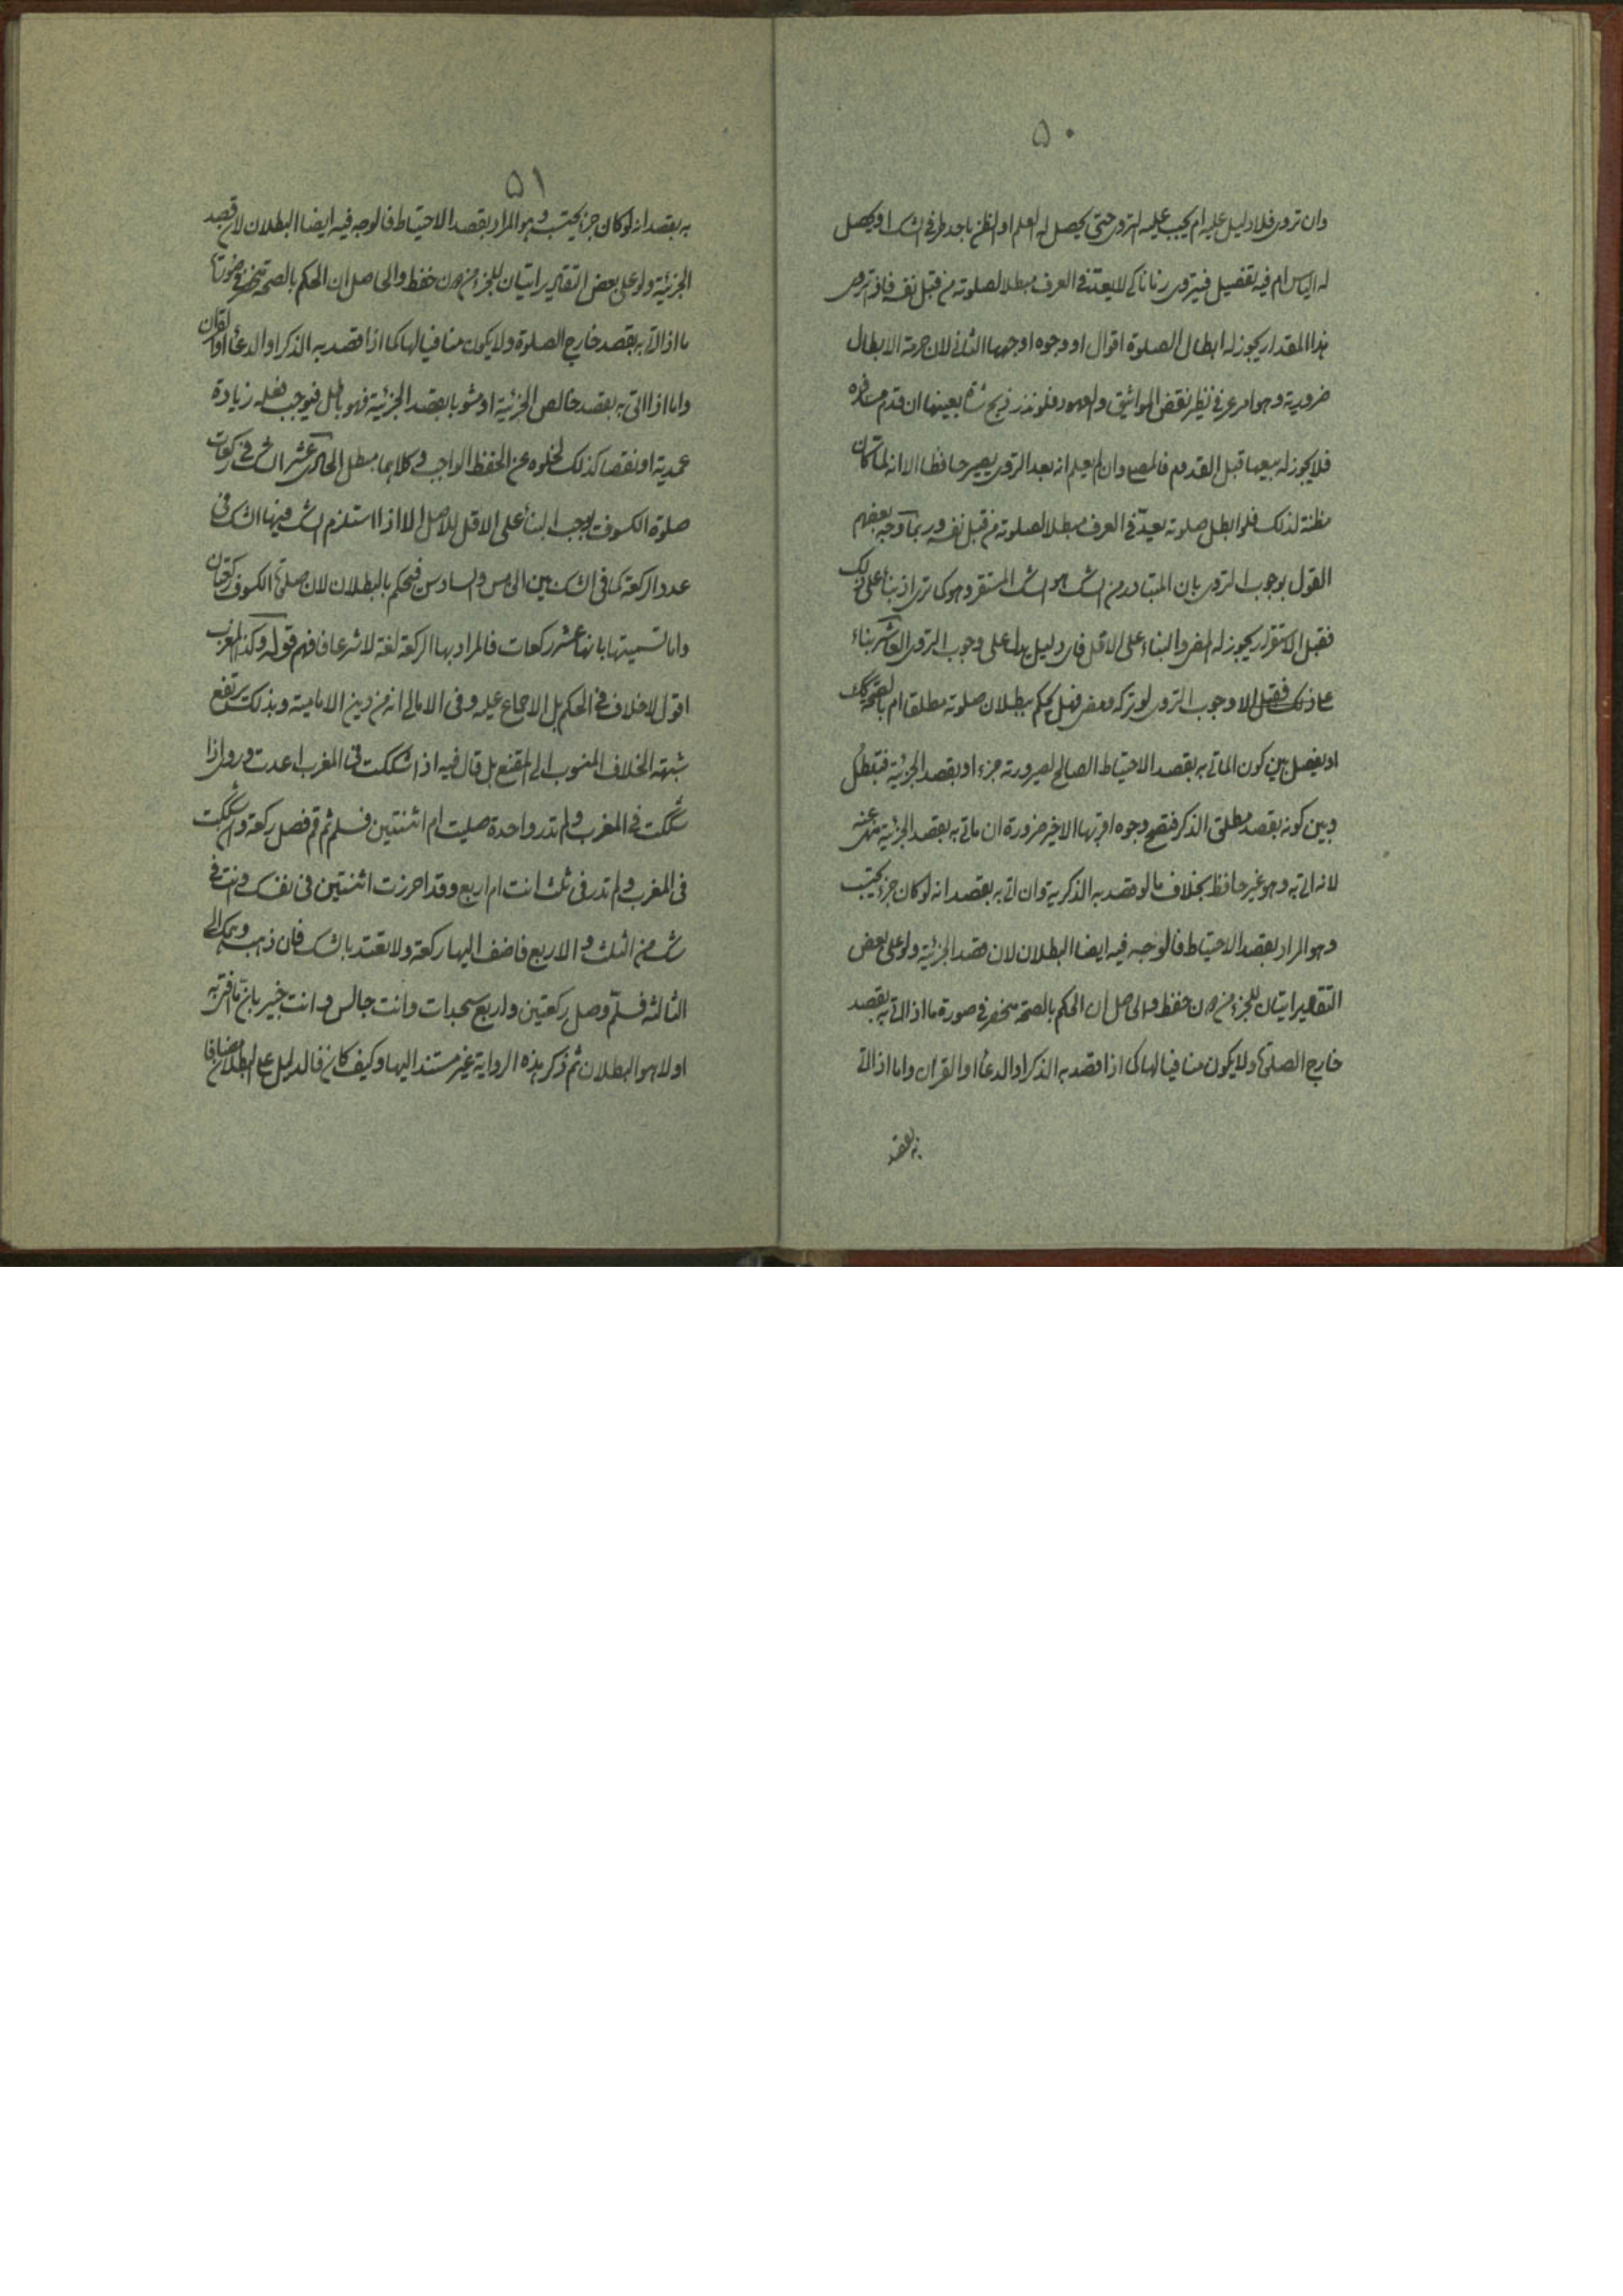 ۵۰
وان تروى فلا دليل عليه ام يجب عليه التروى حتى يحصل له العلم او الظن باحد طرفى الشك او يحصل
له الياس ام فيه تفصيل فيتروى زمانا كى لا يعد فى العرف مبطلا لصلوته من قبل نفسه فاذا تروى
هذا المقدار يجوز له ابطال الصلوة اقوال او وجوه اوجهها الثانى لان حرمة الابطال
ضرورية وهو امر عرفى نظير نقض المواثيق والعهود فلو نذر ذبح شاة بعينها ان قدم مسافره
فلا يجوز له بيعها قبل القدوم فالمصلى وان لم يعلم انه بعد التروى يصير حافظا الا انه لما كان
مظنة لذلك فلو ابطل صلوته يعد فى العرف مبطلا لصلوته من قبل نفسه وربما وجه بعضهم
القول بوجوب التروى بان المتبادر من الشك هو الشك المستقر وهو كما ترى اذ بناء على ذلك
فقبل الاستقرار يجوز له المضى والبناء على الاقل فاى دليل يدل على وجوب التروى العاشر بناء
على ذلك الا وجوب التروى لو تركه ومضى فهل يحكم ببطلان صلوته مطلقا ام بالصحة كك
او يفصل بين كون الماتى به بقصد الاحتياط الصالح لصيرورته جزء او بقصد الجزئية فتبطل
وبين كونه بقصد مطلق الذكر فتصح وجوه اقربها الاخير ضرورة ان ماتى به بقصد الجزئية منهى عنه
لانه اتى به وهو غير حافظ بخلاف ما لو قصد به الذكرية وان اتى به بقصد انه لو كان جزء يحتسب
وهو المراد بقصد الاحتياط فالوجه فيه ايضا البطلان لان قصد الجزئية ولو على بعض
التقادير اتيان للجزء من دون حفظ والحاصل ان الحكم بالصحة منحصر فى صورة ما اذا اتى به بقصد
خارج الصلوة ولا يكون منافيا لها كما اذا قصد به الذكر او الدعاء او القران واما اذا اتى
به بقصد
۵۱
به بقصد انه لو كان جزء يحتسب وهو المراد بقصد الاحتياط فالوجه فيه ايضا البطلان لان قصد
الجزئية ولو على بعض التقادير اتيان للجزء من دون حفظ والحاصل ان الحكم بالصحة منحصر فى صورة
ما اذا اتى به بقصد خارج الصلوة ولا يكون منافيا لها كما اذا قصد به الذكر او الدعاء او القران
واما اذا اتى به بقصد خالص الجزئية او مشوبا بقصد الجزئية فهو باطل فيوجب فعله زيادة
عمدية او نقصا كذلك لخلوه عن الحفظ الواجب وكلاهما مبطل الحادى عشر الشك فى ركعات
صلوة الكسوف يوجب البناء على الاقل للاصل الا اذا استلزم الشك فيها الشك فى
عدد الركعة كما فى الشك بين الخامس والسادس فيحكم بالبطلان لان صلوة الكسوف ركعتان
واما تسميتها بانها عشر ركعات فالمراد بها الركعة لغة لا شرعا فافهم قوله وكذا المغرب
اقول لا خلاف فى الحكم بل الاجماع عليه وفى الامالى انه من دين الامامية وبذلك يرتفع
شبهة الخلاف المنسوب الى المقنع بل قال فيه اذا شككت فى المغرب اعدت وروى اذا
شككت فى المغرب ولم تدر واحدة صليت ام اثنتين فسلم ثم قم فصل ركعة وان شككت
فى المغرب ولم تدر فى ثلث انت ام اربع وقد احرزت اثنتين فى نفسك وانت فى
شك من الثلث والاربع فاضف اليها ركعة ولا تعتد بالشك فان ذهب وهمك الى
الثالثة فسلم وصل ركعتين واربع سجدات وانت جالس وانت خبير بان ما افتى به
اولا هو البطلان ثم ذكر هذه الرواية غير مستند اليها وكيف كان فالدليل على البطلان مضافا